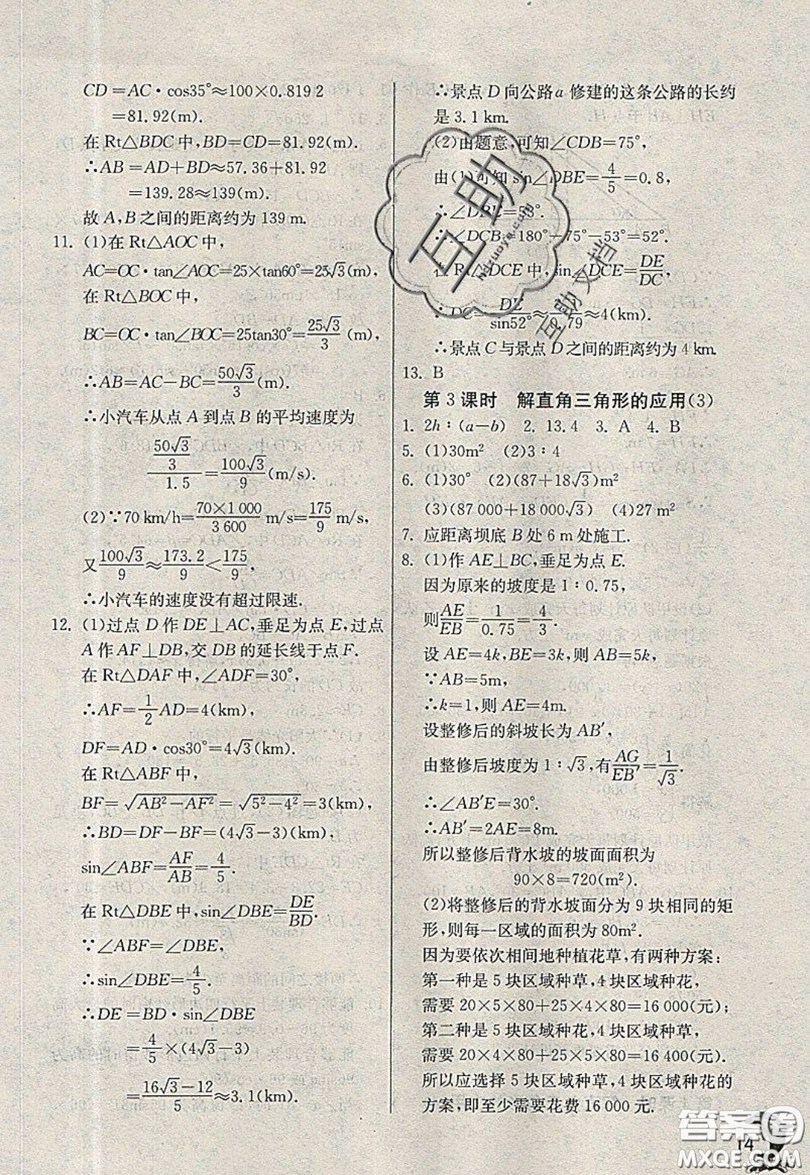 CD=AC·cos35°≈100×0.819 2
=81.92(m).
在Rt△BDC中,BD=CD=81.92(m).
∴AB=AD+BD≈57.36+81.92
=139.28≈139(m).
故A,B之间的距离约为139 m.
11. (1)在Rt△AOC中,
AC=OC·tan∠AOC=25×tan60°=25√3(m).
在Rt△BOC中,
BC=OC·tan∠BOC=25tan30°=25√3/3(m).
∴AB=AC-BC=50√3/3(m).
∴小汽车从点A到点B的平均速度为
(50√3/3)/1.5=100√3/9(m/s).
(2)∵70 km/h=(70×1 000)/(3 600) m/s=175/9(m/s),
又100√3/9≈173.2/9<175/9,
∴小汽车的速度没有超过限速.
12. (1)过点D作DE⊥AC,垂足为点E,过点
A作AF⊥DB,交DB的延长线于点F.
在Rt△DAF中,∠ADF=30°,
∴AF=1/2AD=4(km),
DF=AD·cos30°=4√3(km).
在Rt△ABF中,
BF=√(AB²-AF²)=√(5²-4²)=3(km),
∴BD=DF-BF=(4√3-3)(km),
sin∠ABF=AF/AB=4/5.
在Rt△DBE中,sin∠DBE=DE/BD.
∵∠ABF=∠DBE,
∴sin∠DBE=4/5.
∴DE=BD·sin∠DBE
=4/5×(4√3-3)
=(16√3-12)/5≈3.1(km).
∴景点D向公路a修建的这条公路的长约
是3.1 km.
(2)由题意,可知∠CDB=75°,
由(1)可知sin∠DBE=4/5=0.8,
∴∠DBE=53°.
∴∠DCB=180°-75°-53°=52°.
在Rt△DCE中,sin∠DCE=DE/DC,
∴DC=DE/sin52°≈ /0.79≈4(km).
∴景点C与景点D之间的距离约为4 km.
13. B
第3课时 解直角三角形的应用(3)
1. 2h∶(a-b) 2. 13.4 3. A 4. B
5. (1)30m² (2)3∶4
6. (1)30° (2)(87+18√3)m²
(3)(87 000+18 000√3) (4)27 m²
7. 应距离坝底B处6 m处施工.
8. (1)作AE⊥BC,垂足为点E.
因为原来的坡度是1∶0.75,
则AE/EB=1/0.75=4/3.
设AE=4k,BE=3k,则AB=5k.
∵AB=5m,
∴k=1,则AE=4m.
设整修后的斜坡长为AB′,
由整修后坡度为1∶√3,有AG/EB′=1/√3.
∴∠AB′E=30°.
∴AB′=2AE=8m.
所以整修后背水坡的坡面面积为
90×8=720(m²).
(2)将整修后的背水坡面分为9块相同的矩
形,则每一区域的面积为80m².
因为要依次相间地种植花草,有两种方案:
第一种是5块区域种草,4块区域种花,
需要20×5×80+25×4×80=16 000(元);
第二种是5块区域种花,4块区域种草,
需要20×4×80+25×5×80=16 400(元).
所以应选择5块区域种草,4块区域种花的
方案,即至少需要花费16 000元.
14
互助
互助文档
答案圈
MXQE.COM